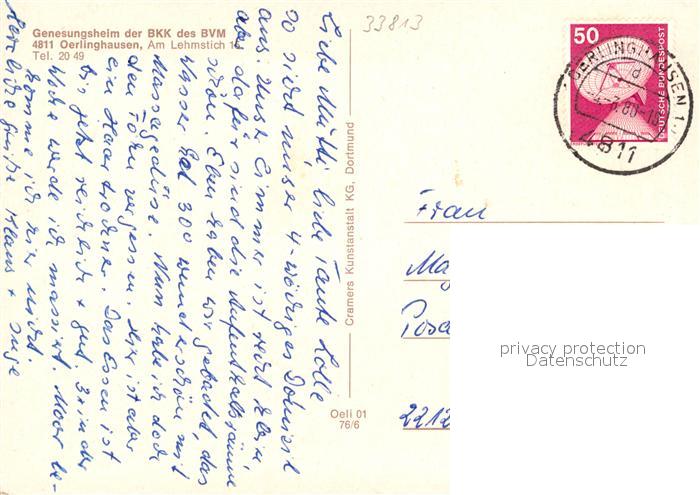 Genesungsheim der BKK des BVM
4811 Oerlinghausen, Am Lehmstich 1
Tel. 20 49
33813
50
DEUTSCHE BUNDESPOST
OERLINGHAUSEN 1
4811
Liebe Mutti, liebe Tante Lolle
So sieht unser 4-wöchiges Domizil
aus. Unser Zimmer ist recht klein
aber dafür sind die Aufenthaltsräume
schön. Eben haben wir gebadet, das
Wasser hat 30° wunderschön, mit
Massagedüse. Nun habe ich doch
den Fön vergessen. Hier ist aber
ein Haartrockner. Das Essen ist
bis jetzt reichlich + gut. 3x in der
Woche werde ich massiert. Moor be-
komme ich hier nicht.
Herzliche Grüße Klaus + Inge
Cramers Kunstanstalt KG, Dortmund
Oeli 01
76/6
Frau
Ma
Posc
2212
privacy protection
Datenschutz